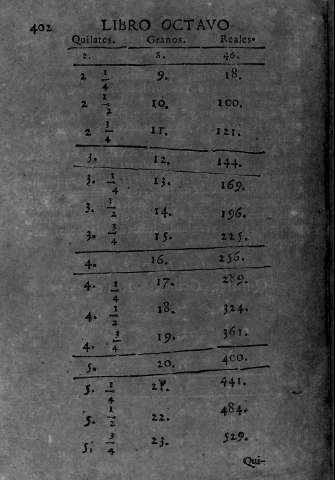 402 LIBRO OCTAVO
Quilates. Granos. Reales.
2. 8. 46.
2 1/4 9. 18.
2 1/2 10. 100.
2 3/4 11. 121.
3. 12. 144.
3. 1/4 13. 169.
3. 1/2 14. 196.
3. 3/4 15. 225.
4. 16. 256.
4. 1/4 17. 289.
4. 1/2 18. 324.
4. 3/4 19. 361.
5. 20. 400.
5. 1/4 21. 441.
5. 1/2 22. 484.
5. 3/4 23. 529.
Qui-